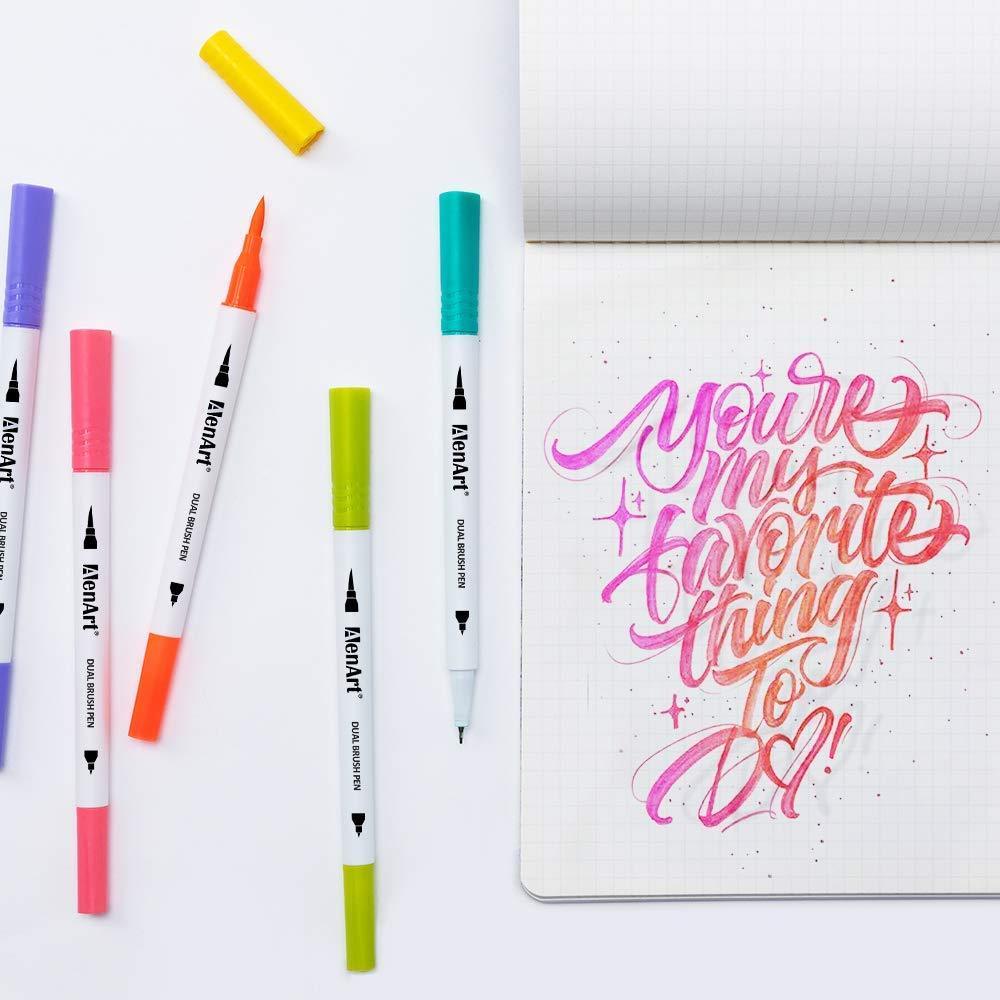 AenArt®
DUAL BRUSH PEN
AenArt®
DUAL BRUSH PEN
AenArt®
DUAL BRUSH PEN
AenArt®
DUAL BRUSH PEN
AenArt®
DUAL BRUSH PEN
You're
my
favorite
thing
To
DO!